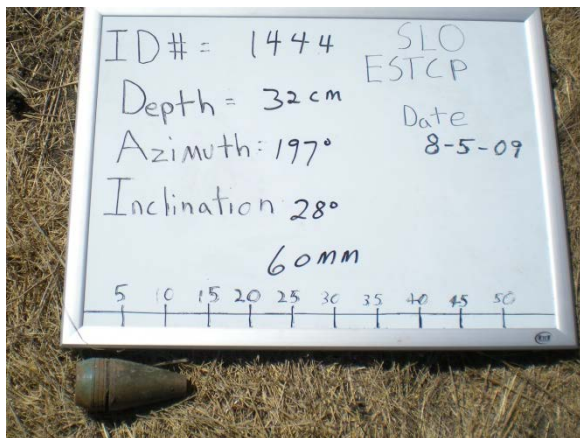 ID# = 1444
SLO
ESTCP
Depth = 32cm
Date
8-5-09
Azimuth: 197°
Inclination 28°
60mm
5 10 15 20 25 30 35 40 45 50